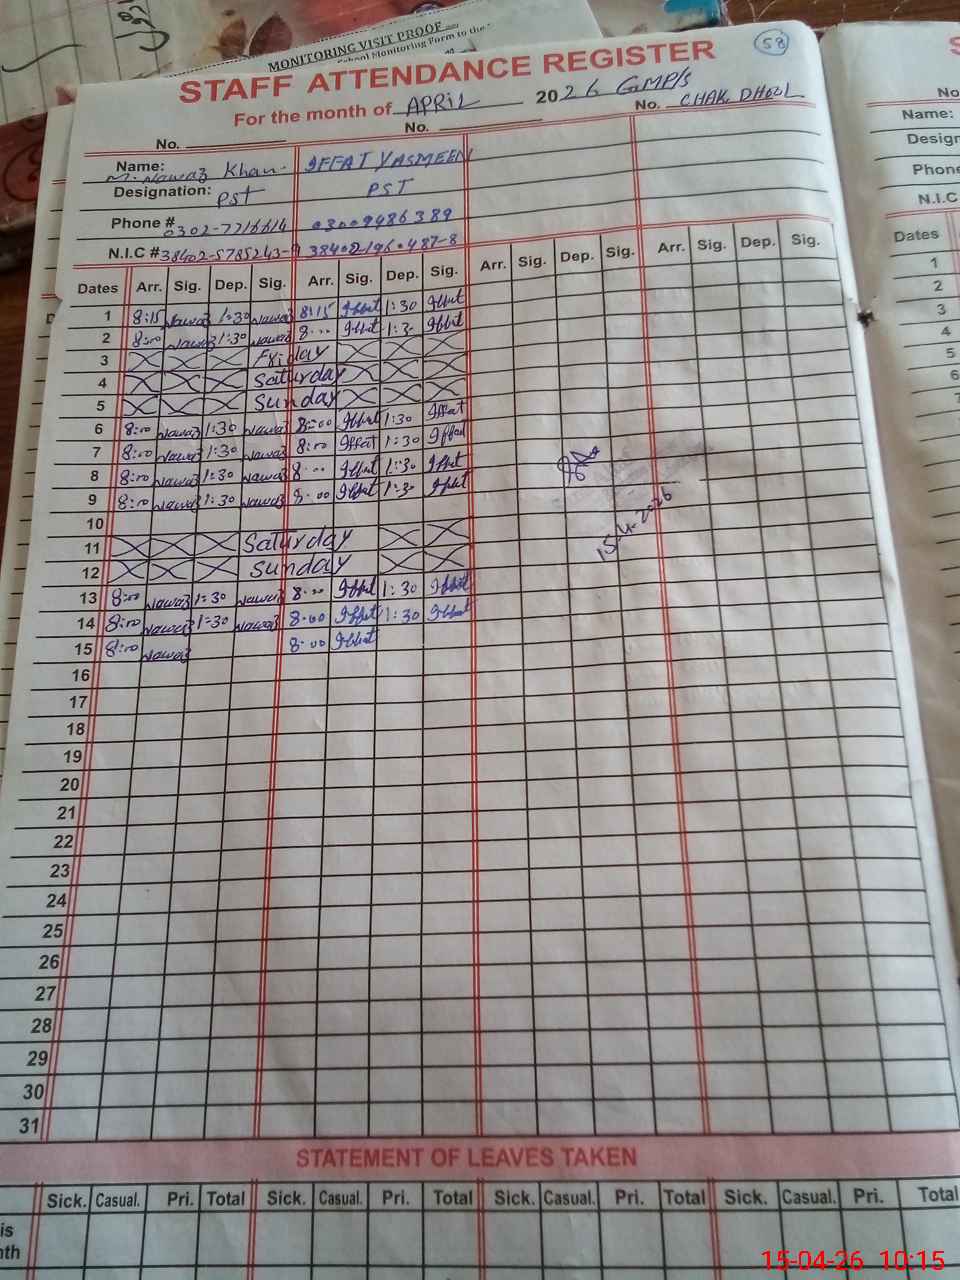 MONITORING VISIT PROOF
School Monitoring Form to the
58
STAFF ATTENDANCE REGISTER
For the month of APRIL 2026 GMP/S
No. No. No. CHAK DHOOL
Name: M. Nawaz Khan. IFFAT YASMEEN
Designation: PST PST
Phone # 0302-7716614 03009486389
N.I.C #38402-5785243-9 38402196.487-8
Dates Arr. Sig. Dep. Sig. Arr. Sig. Dep. Sig. Arr. Sig. Dep. Sig. Arr. Sig. Dep. Sig.
1 8:15 Nawaz 1:30 Nawaz 8:15 Iffat 1:30 Iffat
2 8:00 Nawaz 1:30 Nawaz 8:00 Iffat 1:30 Iffat
3 Friday
4 Saturday
5 Sunday
6 8:00 Nawaz 1:30 Nawaz 8:00 Iffat 1:30 Iffat
7 8:00 Nawaz 1:30 Nawaz 8:00 Iffat 1:30 Iffat
8 8:00 Nawaz 1:30 Nawaz 8:00 Iffat 1:30 Iffat
9 8:00 Nawaz 1:30 Nawaz 8:00 Iffat 1:30 Iffat
10
11 Saturday
12 Sunday
15-4-2026
13 8:00 Nawaz 1:30 Nawaz 8:00 Iffat 1:30 Iffat
14 8:00 Nawaz 1:30 Nawaz 8:00 Iffat 1:30 Iffat
15 8:00 Nawaz 8:00 Iffat
16
17
18
19
20
21
22
23
24
25
26
27
28
29
30
31
STATEMENT OF LEAVES TAKEN
Sick. Casual. Pri. Total Sick. Casual. Pri. Total Sick. Casual. Pri. Total Sick. Casual. Pri. Total
No
Name:
Design
Phone
N.I.C
Dates
1
2
3
4
5
6
15-04-26 10:15